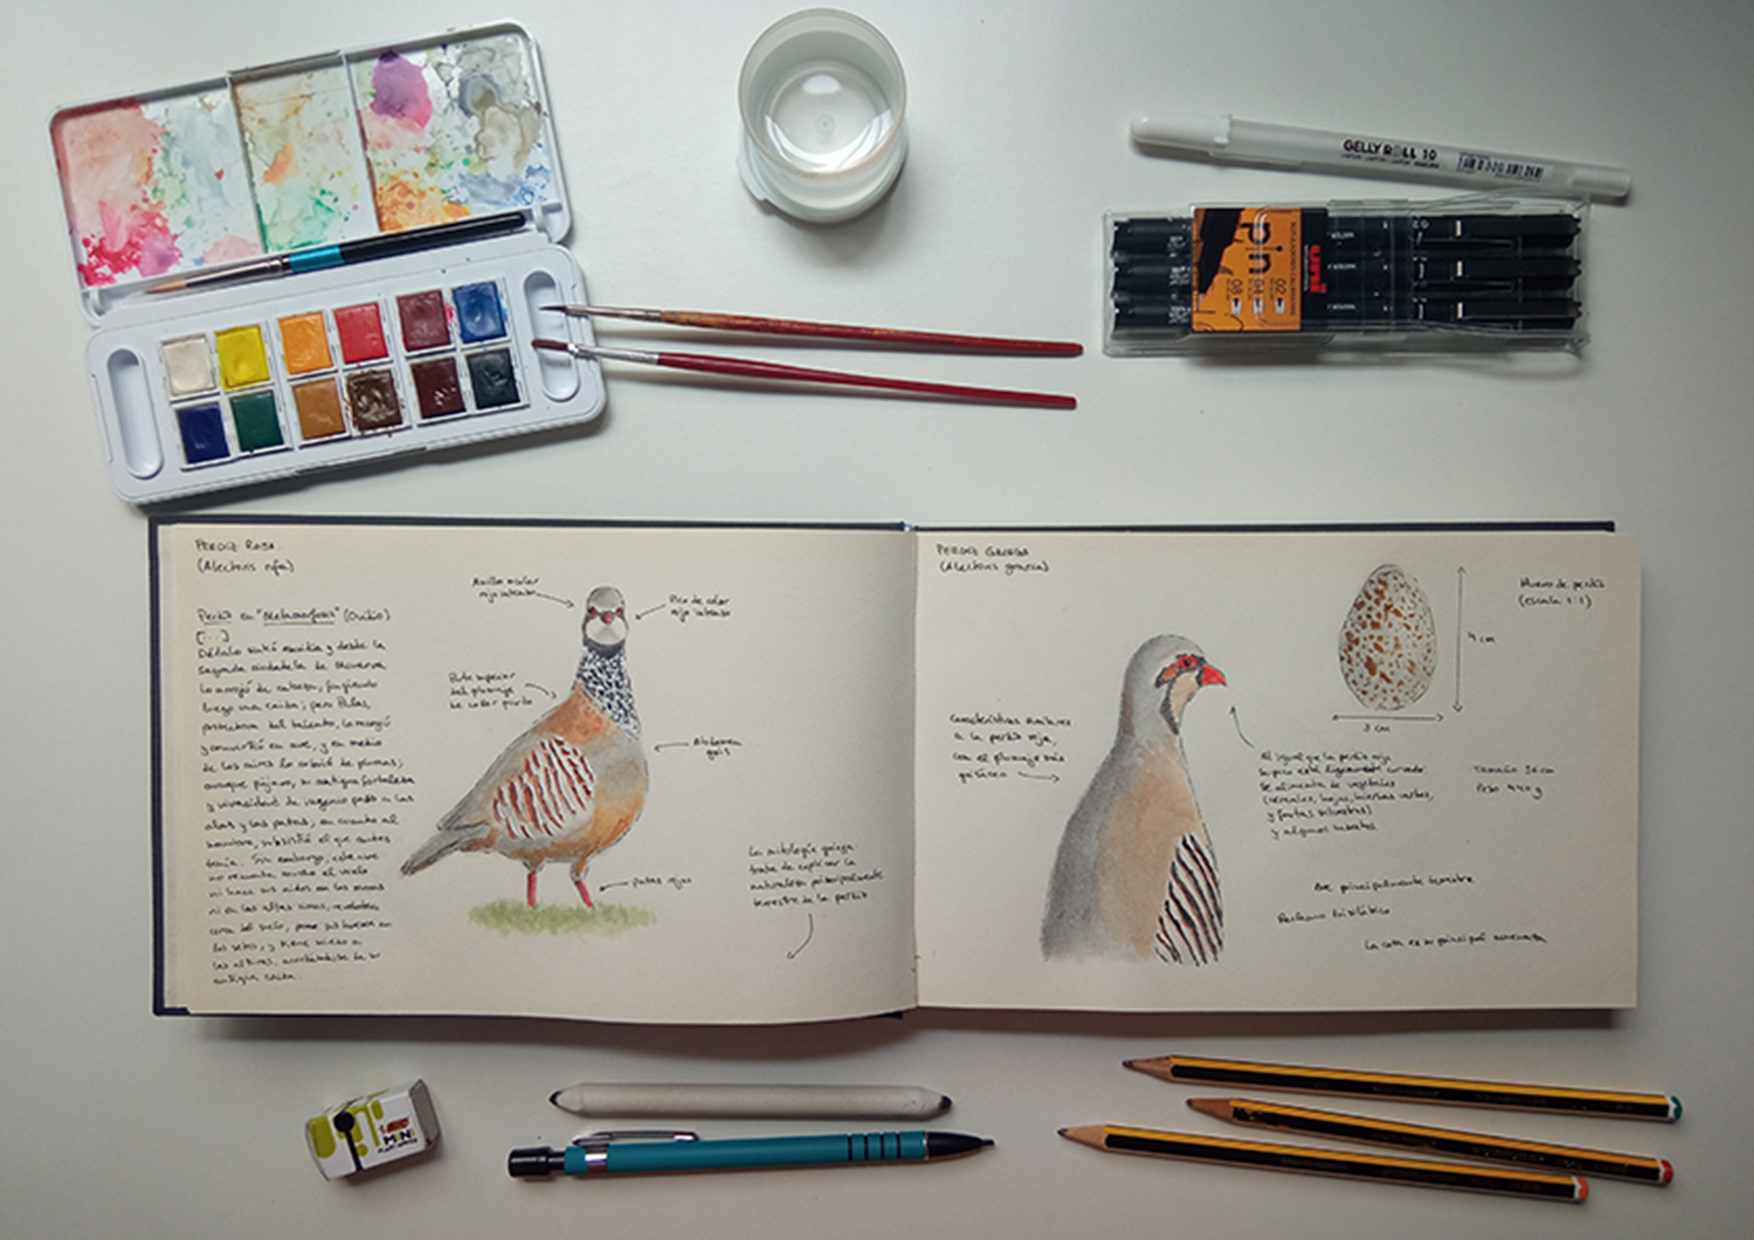 GELLY ROLL 10
uni
pin
02
04
08
PERDIZ ROJA
(Alectoris rufa)
Perdiz en "Metamorfosis" (Ovidio)
[...]
Dédalo sintió envidia y desde la
sagrada ciudadela de Minerva
lo arrojó de cabeza, fingiendo
luego una caída; pero Palas,
protectora del talento, lo recogió
y convirtió en ave, y en medio
de los aires lo cubrió de plumas;
aunque pájaro, su antigua fortaleza
y vivacidad de ingenio pasó a las
alas y las patas; en cuanto al
nombre, subsistió el que antes
tenía. Sin embargo, este ave
no remonta mucho el vuelo
ni hace sus nidos en las ramas
ni en las altas cimas, revolotea
cerca del suelo, pone sus huevos en
los setos, y tiene miedo a
las alturas, acordándose de su
antigua caída.
Anillo ocular
rojo intenso
Pico de color
rojo intenso
Parte superior
del plumaje
de color pardo
Abdomen
gris
patas rojas
La mitología griega
trata de explicar la
naturaleza principalmente
terrestre de la perdiz
PERDIZ GRIEGA
(Alectoris graeca)
Huevo de perdiz
(escala 1:1)
4 cm
3 cm
Características similares
a la perdiz roja,
con el plumaje más
grisáceo
Al igual que la perdiz roja
su pico está ligeramente curvado.
Se alimenta de vegetales
(cereales, hojas, hierbas verdes,
y frutas silvestres)
y algunos insectos
Tamaño 36 cm
Peso 440 g
Ave principalmente terrestre
Reclamo trisilábico
La caza es su principal amenaza
BIC
MINI